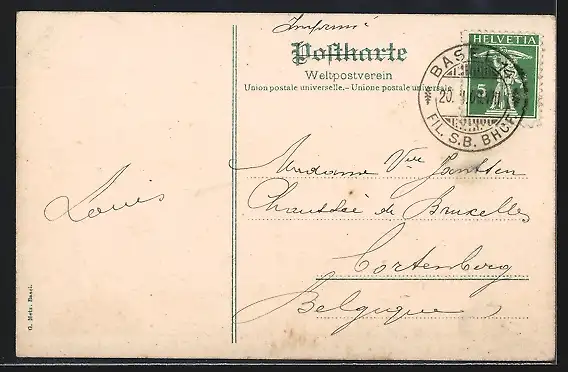 Imprimé
Postkarte
Weltpostverein
Union postale universelle. – Unione postale universale
HELVETIA
5
BASEL
FIL. S.B. BHOF
Madame Vve
Chaussée de Bruxelles
Cortenberg
Belgique
Louis
G. Metz, Basel.